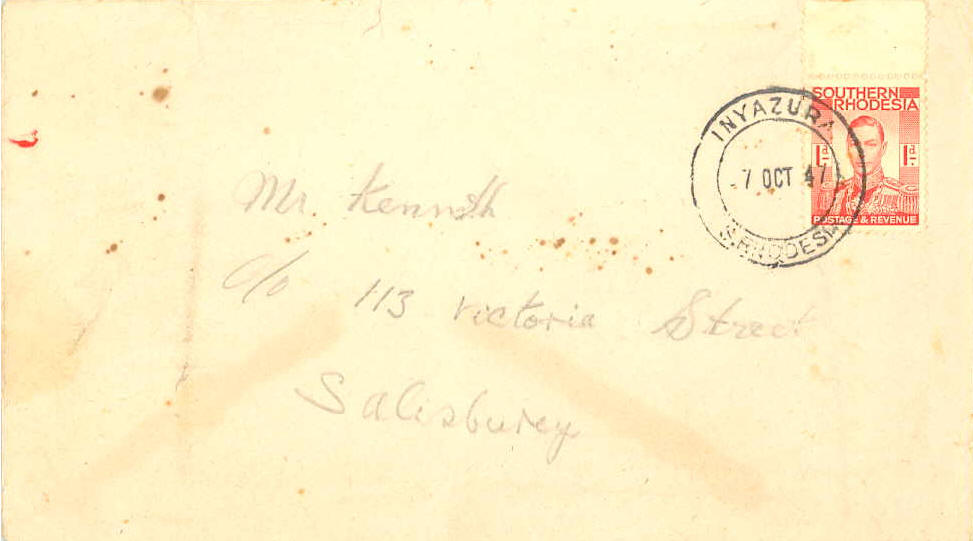 SOUTHERN
RHODESIA
1d 1d
POSTAGE & REVENUE
INYAZURA
7 OCT 47
S. RHODESIA
Mr. Kennoth
c/o 113 victoria Street
Salisburey